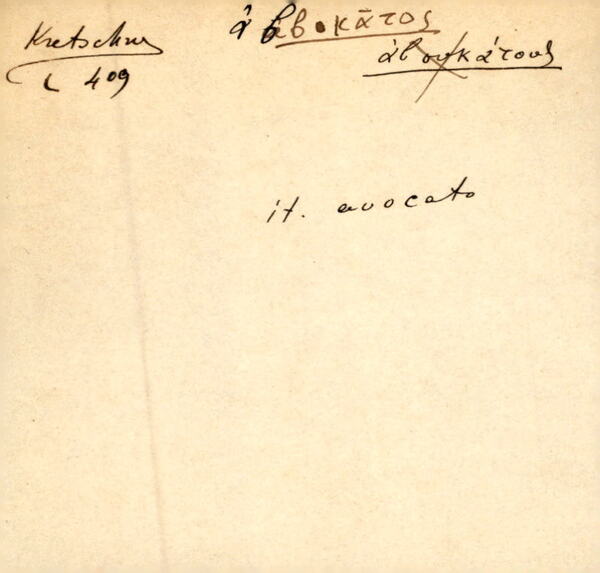 Kretschmer
L 409
ἀβοκᾶτος
ἀβουκάτους
it. avocato